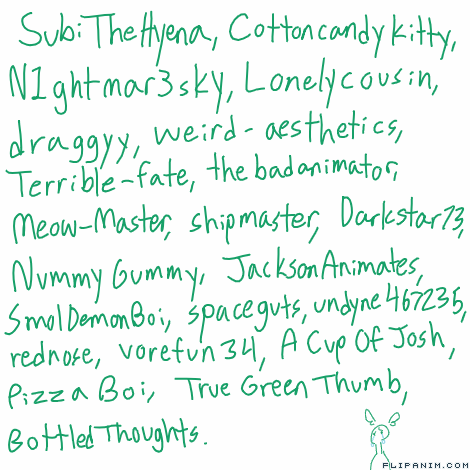 SubiTheHyena, Cottoncandykitty,
N1ghtmar3sky, Lonelycousin,
draggyy, weird-aesthetics,
Terrible-fate, the badanimator,
Meow-Master, shipmaster, Darkstar73,
Nummy Gummy, JacksonAnimates,
SmolDemonBoi, spaceguts, undyne467235,
rednose, vorefun34, A Cup Of Josh,
Pizza Boi, True Green Thumb,
BottledThoughts.
FLIPANIM.COM